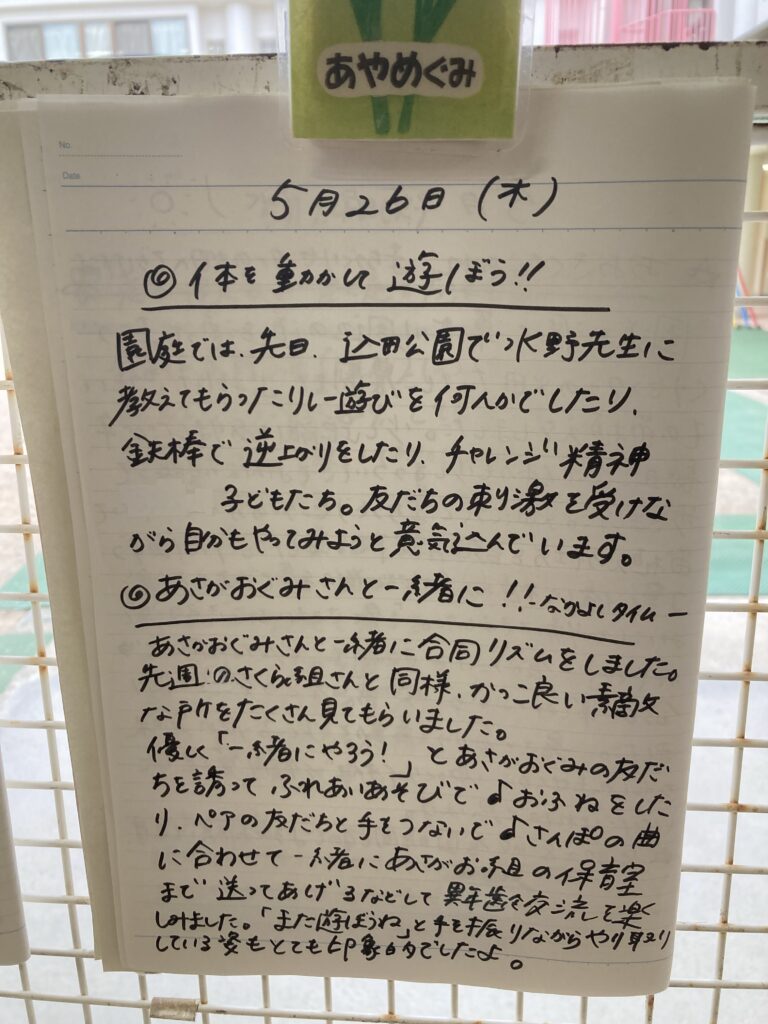 あやめぐみ
No.
Date
5月26日(木)
◎体を動かして遊ぼう!!
園庭では、先日、込田公園で水野先生に
教えてもらったこりしー遊びを何人かでしたり、
鉄棒で逆上がりをしたり、チャレンジ精神
子どもたち。友だちの刺激を受けな
がら自分もやってみようと意気込んでいます。
◎あさがおぐみさんと一緒に!!-なかよしタイム-
あさがおぐみさんと一緒に合同リズムをしました。
先週のさくら組さんと同様、かっこ良い素敵
な所をたくさん見てもらいました。
優しく「一緒にやろう!」とあさがおぐみの友だ
ちを誘ってふれあいあそびで♪おふねをした
り、ペアの友だちと手をつないで♪さんぽの曲
に合わせて一緒にあさがお組の保育室
まで送ってあげるなどして異年齢で交流を楽
しみました。「また遊ぼうね」と手を振りながらやり取り
している姿もとても印象的でしたよ。